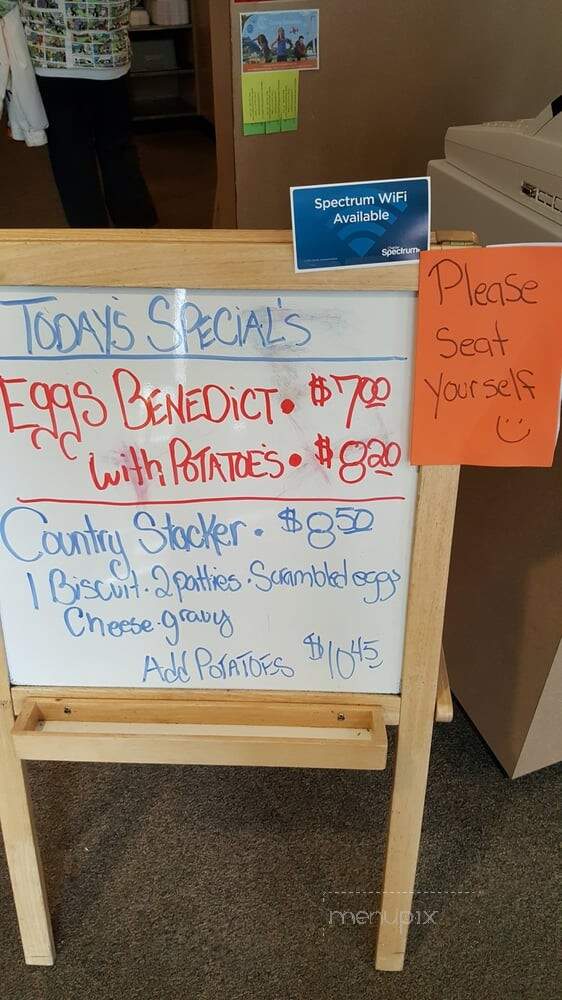 Spectrum WiFi
Available
Charter
Spectrum
Please
Seat
yourself
TODAY'S SPECIAL'S
EGGS BENEDICT • $7.00
with POTATOE'S • $8.20
Country Stacker • $8.50
1 Biscuit • 2 patties • Scrambled eggs
Cheese • gravy
Add POTATOES $10.45
menupix